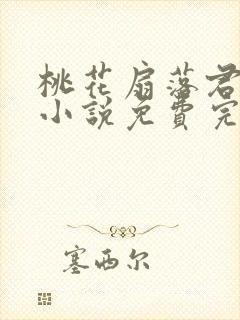 桃花扇落君
小說免費完
塞西尔